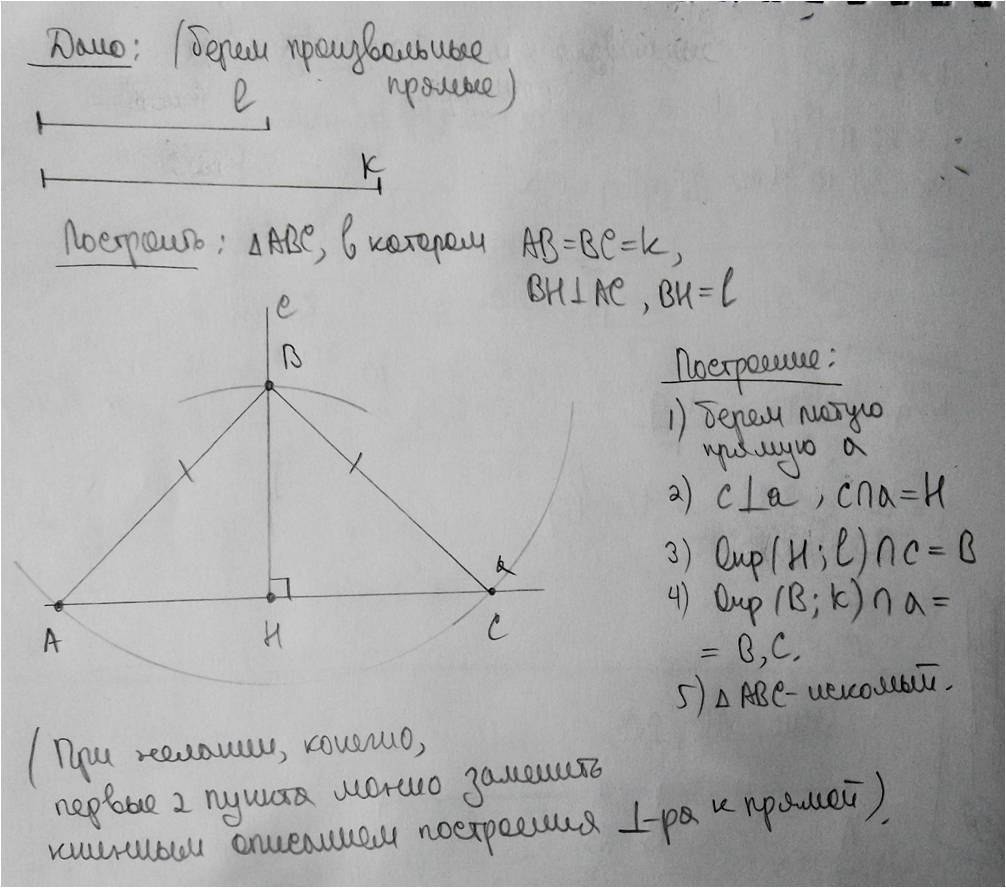 Дано: (берем произвольные
прямые)
l
k
Построить: △ABC, в котором AB=BC=k,
BH⊥AC, BH=l
c
B
A
H
C
a
Построение:
1) берем любую
прямую a
2) c⊥a, c∩a=H
3) Окр(H; l)∩c=B
4) Окр(B; k)∩a=
= B,C.
5) △ABC- искомый.
(При желании, конечно,
первые 2 пункта можно заменить
книжным описанием построения ⊥-ра к прямой).